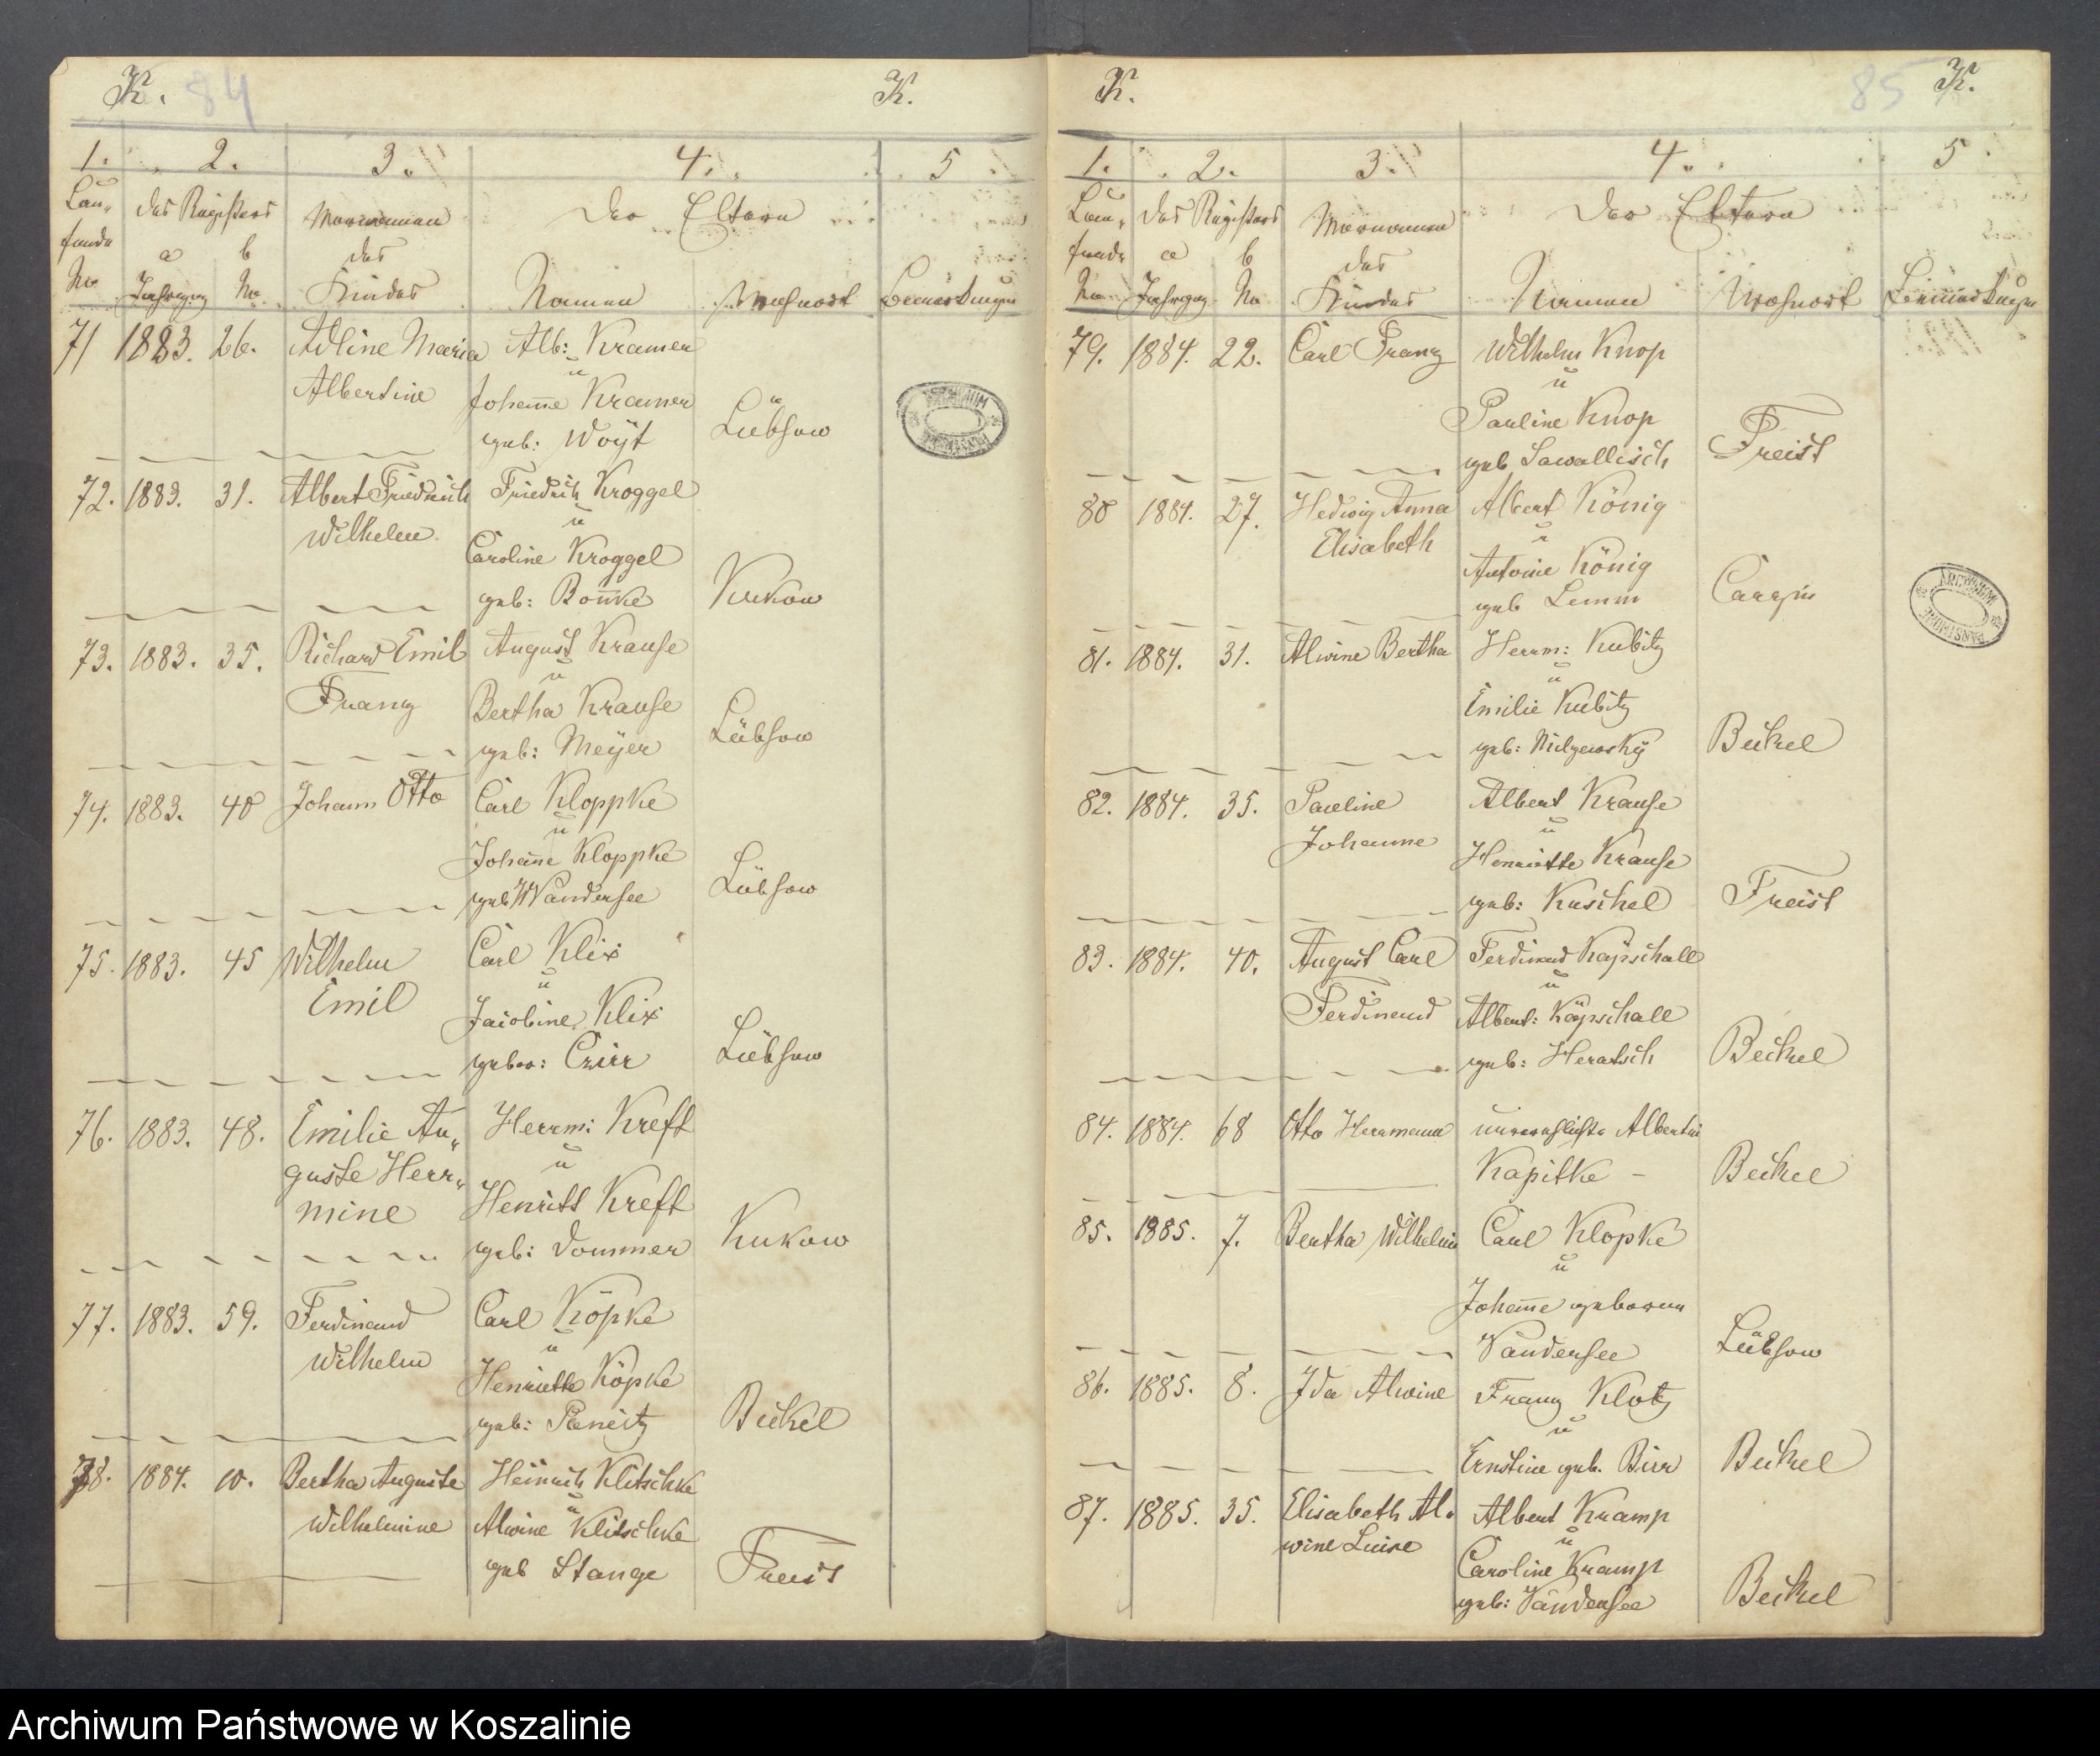 K. 84 K.
1. 2. 3. 4. 5
Lau- des Registers Vornamen Der Eltern
fende a b des
No Jahrgang No Kindes Namen Wohnort Bemerkungen
71 1883. 26. Adline Maria Alb: Kramer
u
Albertine Johanne Kramer
geb: Woÿt Lübsow
72. 1883. 31. Albert Friedrich Friedrich Kroggel
u
Wilhelm Caroline Kroggel
geb: Bonnke Kukow
73. 1883. 35. Richard Emil August Krause
u
Franz Bertha Krause
geb: Meÿer Lübsow
74. 1883. 40 Johann Otto Carl Kloppke
u
Johanne Kloppke
geb Vandersee Lübsow
75. 1883. 45 Wilhelm Carl Klix
u
Emil Jacobine Klix
gebor: Czirr Lübsow
76. 1883. 48. Emilie Au- Herrm: Kreft
u
guste Herr- Henriett Kreft
mine geb: Dommer Kukow
77. 1883. 59. Ferdinand Carl Köpke
u
Wilhelm Henriette Köpke
geb: Paneitz Beckel
78. 1884. 10. Bertha Auguste Heinrich Klitschke
u
Wilhelmine Alwine Klitschke
geb Stange Freist
K. 85 K.
1. 2. 3. 4. 5
Lau- des Registers Vornamen Der Eltern
fende a b des
No Jahrgang No Kindes Namen Wohnort Bemerkungen
79. 1884. 22. Carl Franz Wilhelm Knop
u
Pauline Knop
geb Sawallisch Freist
80 1884. 27. Hedwig Anna Albert König
u
Elisabeth Antonie König
geb Lemm Carzin
81. 1884. 31. Alwine Bertha Herrm: Kubitz
u
Emilie Kubitz
geb: Milzewskÿ Beckel
82. 1884. 35. Pauline Albert Krause
u
Johanne Henriette Krause
geb: Kuschel Freist
83. 1884. 40. August Carl Ferdinand Kapschall
u
Ferdinand Albert: Kapschall
geb: Heratsch Beckel
84. 1884. 68 Otto Herrmann unverehlichte Albertin
Kapitke – Beckel
85. 1885. 7. Bertha Wilhelmin Carl Klopke
u
Johanne geboren
Vandersee Lübsow
86. 1885. 8. Ida Alwine Franz Klotz
u
Ernstine geb. Birr Beckel
87. 1885. 35. Elisabeth Al- Albert Kramp
u
wine Luise Caroline Kramp
geb: Vandersee Beckel
ARCHIWUM
PAŃSTWOWE
Archiwum Państwowe w Koszalinie